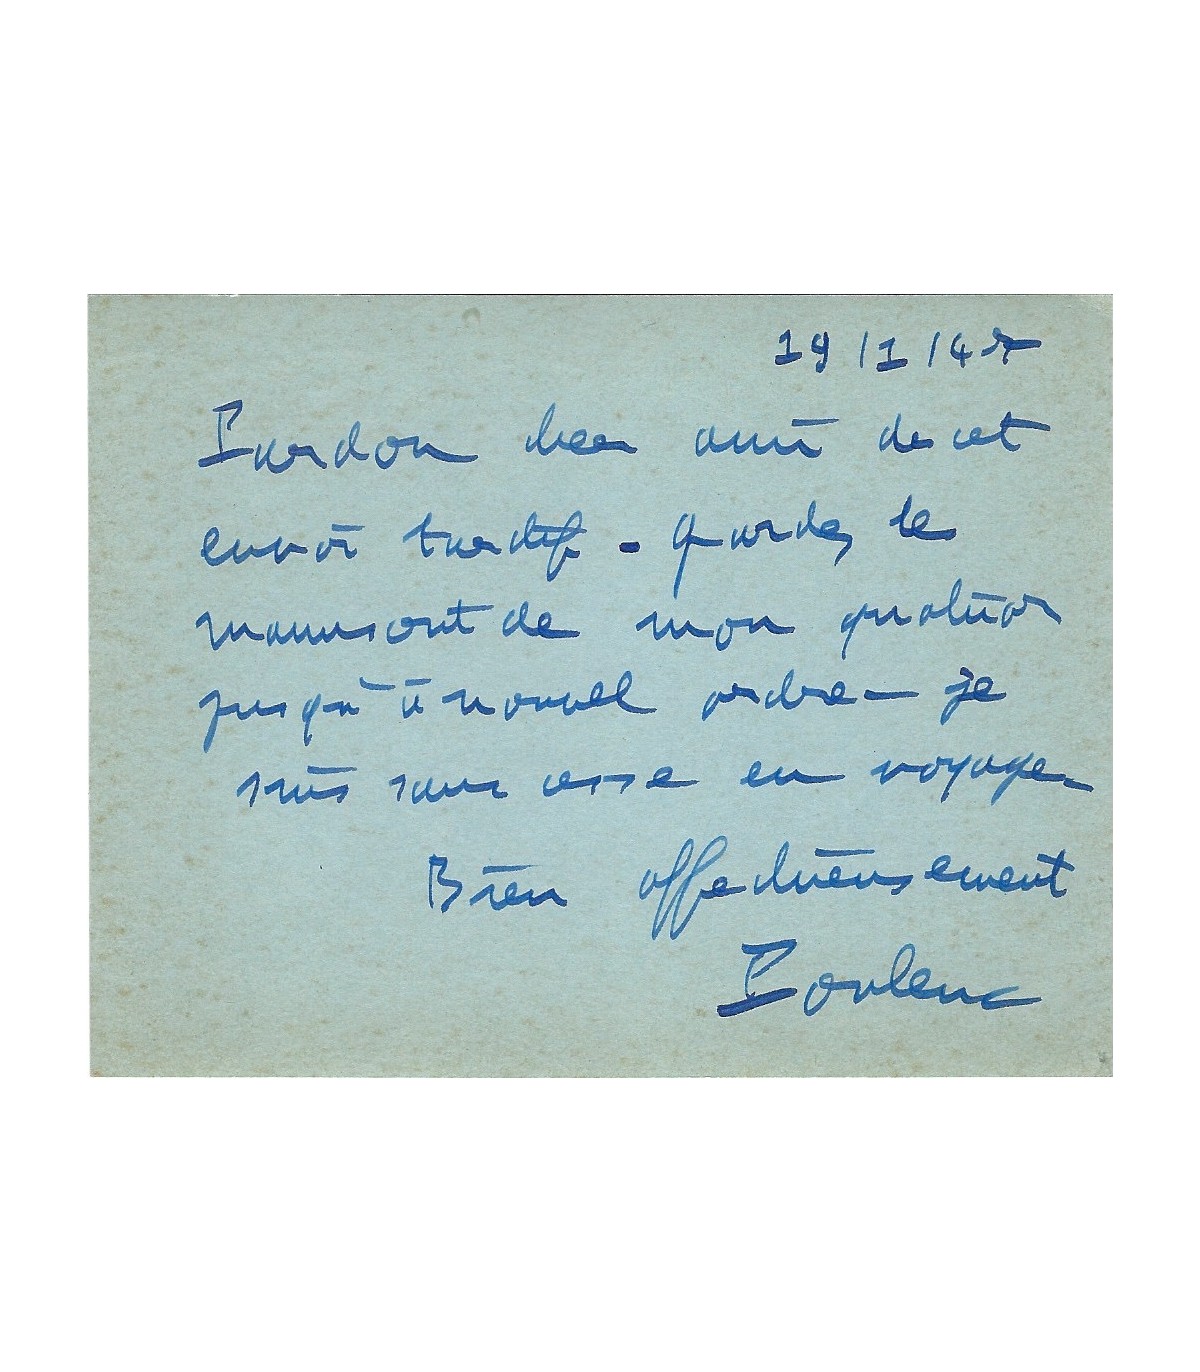 19/1/47
Pardon cher ami de cet
envoi tardif - gardez le
manuscrit de mon quatuor
jusqu'à nouvel ordre - je
suis sans cesse en voyage -
Bien affectueusement
Poulenc